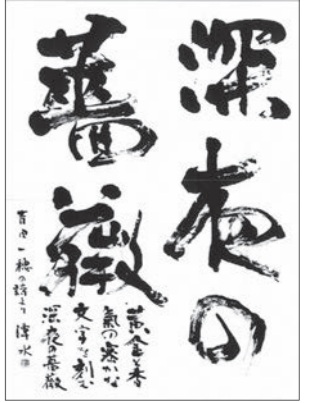 深夜の
薔薇
黄金と香
氣の密かな
文字を刻む
深夜の薔薇
吉田一穂の詩より 澤水